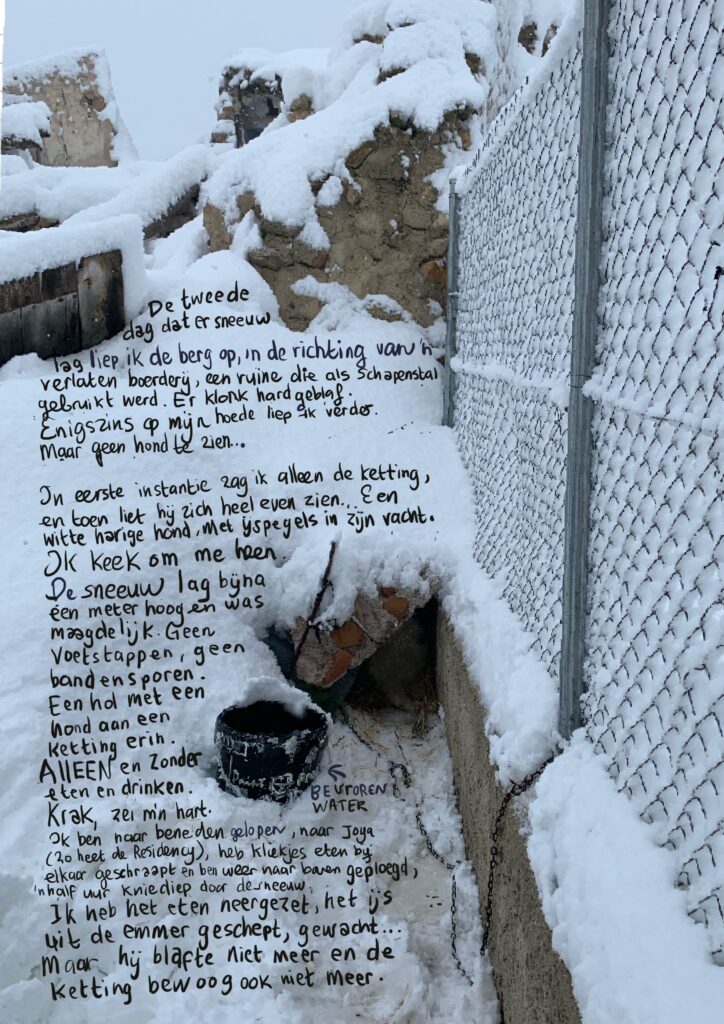 De tweede
dag dat er sneeuw
lag liep ik de berg op, in de richting van 'n
verlaten boerderij, een ruine die als schapenstal
gebruikt werd. Er klonk hard geblaf.
Enigszins op mijn hoede liep ik verder.
Maar geen hond te zien...
In eerste instantie zag ik alleen de ketting,
en toen liet hij zich heel even zien. Een
witte harige hond, met ijspegels in zijn vacht.
Ik keek om me heen
De sneeuw lag bijna
één meter hoog en was
maagdelijk. Geen
voetstappen, geen
bandensporen.
Een hol met een
hond aan een
ketting erin.
ALLEEN en zonder
eten en drinken.
BEVROREN
WATER
Krak, zei m'n hart.
Ik ben naar beneden gelopen, naar Joya
(zo heet de Residency), heb kliekjes eten bij
elkaar geschraapt en ben weer naar boven geploegd,
'n half uur kniediep door de sneeuw.
Ik heb het eten neergezet, het ijs
uit de emmer geschept, gewacht...
Maar hij blafte niet meer en de
ketting bewoog ook niet meer.